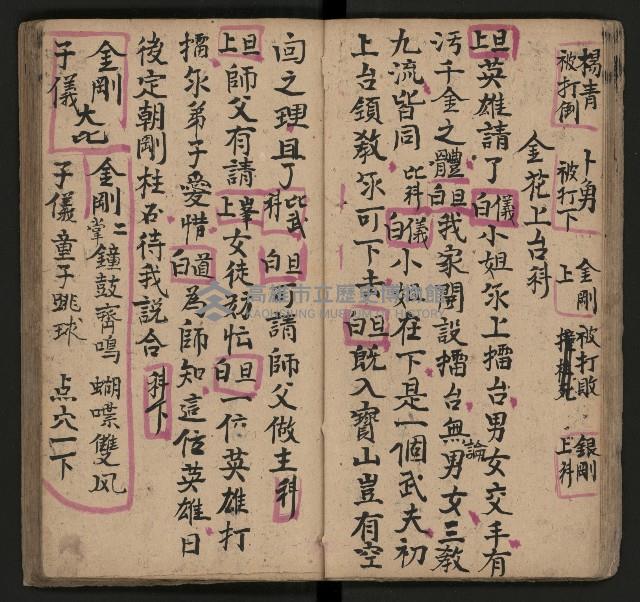 楊青被打倒 卜勇被打下 金剛上 被打敗 銀剛上科
金花上台科
旦上英雄請了 儀白小姐汆上擂台男女交手有
污千金之體 旦白我家開設擂台無論男女三教
九流皆同 比科 儀白小姐在下是一個武夫初
上台領教汆可下去 旦白既入寶山豈有空
回之理且了 比武科 旦白 請師父做主科
旦上師父有請 峯上女徒 忙 旦白一位英雄打
擂汆弟子愛惜 道白為師知這位英雄日
後定朝剛柱石待我說合 科下
金剛 大比 金剛二掌 鐘鼓齊鳴 蝴喋雙风
子儀 子儀 童子跳球 点穴一下
高雄市立歷史博物館
KAOHSIUNG MUSEUM OF HISTORY